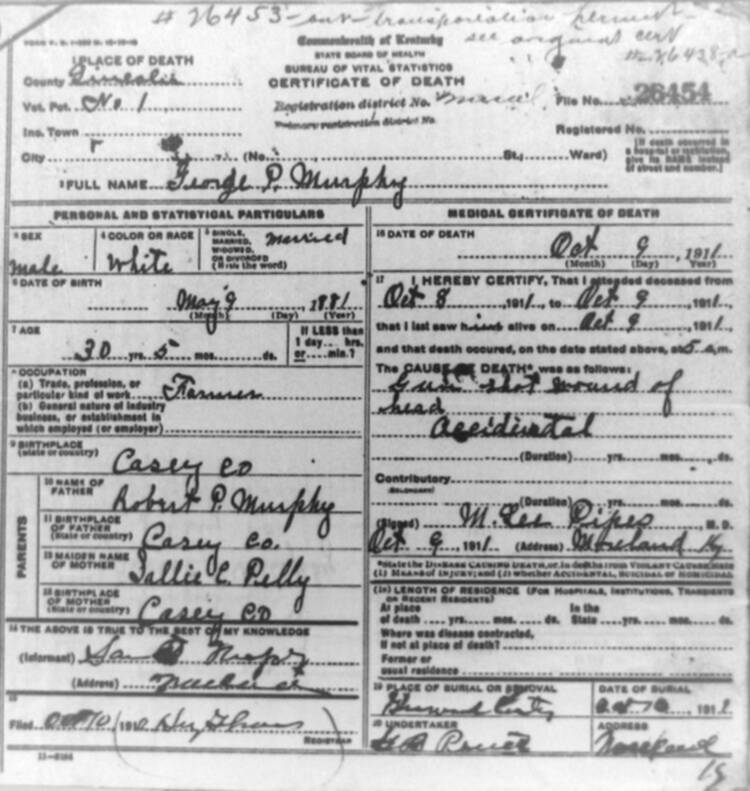 # 26453 - out - transportation permit -
see original cert
Commonwealth of Kentucky
STATE BOARD OF HEALTH
BUREAU OF VITAL STATISTICS
CERTIFICATE OF DEATH
1 PLACE OF DEATH
County
Vot. Pct. No 1
Inc. Town
City (No. St.; Ward)
Registration district No.
Primary registration district No.
File No. 26454
Registered No.
[If death occurred in a hospital or institution, give its NAME instead of street and number.]
2 FULL NAME George P. Murphy
PERSONAL AND STATISTICAL PARTICULARS
3 SEX
male
4 COLOR OR RACE
White
5 SINGLE, MARRIED, WIDOWED, OR DIVORCED
(Write the word)
married
6 DATE OF BIRTH
May 9 1881
(Month) (Day) (Year)
7 AGE
30 yrs. 5 mos. ds.
If LESS than
1 day... hrs.
or... min.?
8 OCCUPATION
(a) Trade, profession, or
particular kind of work Farmer
(b) General nature of industry
business, or establishment in
which employed (or employer)
9 BIRTHPLACE
(State or country)
Casey Co
PARENTS
10 NAME OF
FATHER
Robert P. Murphy
11 BIRTHPLACE
OF FATHER
(State or country)
Casey Co.
12 MAIDEN NAME
OF MOTHER
Sallie C. Pelly
13 BIRTHPLACE
OF MOTHER
(State or country)
Casey Co
14 THE ABOVE IS TRUE TO THE BEST OF MY KNOWLEDGE
(Informant)
(Address)
15
Filed Oct 10, 191
REGISTRAR
11-6184
MEDICAL CERTIFICATE OF DEATH
16 DATE OF DEATH
Oct 9, 1911
(Month) (Day) (Year)
17 I HEREBY CERTIFY, That I attended deceased from
Oct 8 1911, to Oct 9, 1911,
that I last saw him alive on Oct 9, 1911,
and that death occurred, on the date stated above, at 5 a.m.
The CAUSE OF DEATH* was as follows:
Gun shot wound of
head
Accidental
(Duration) yrs. mos. ds.
Contributory
(SECONDARY)
(Duration) yrs. mos. ds.
(Signed) M. Lee Pipes M. D.
Oct 9, 1911 (Address) Moreland Ky
*State the DISEASE CAUSING DEATH, or, in deaths from VIOLENT CAUSES, state
(1) MEANS OF INJURY; and (2) whether ACCIDENTAL, SUICIDAL or HOMICIDAL
(18) LENGTH OF RESIDENCE (FOR HOSPITALS, INSTITUTIONS, TRANSIENTS
OR RECENT RESIDENTS)
At place In the
of death yrs. mos. ds. State yrs. mos. ds.
Where was disease contracted,
if not at place of death?
Former or
usual residence
19 PLACE OF BURIAL OR REMOVAL
DATE OF BURIAL
Oct 10, 191
20 UNDERTAKER
ADDRESS
Moreland